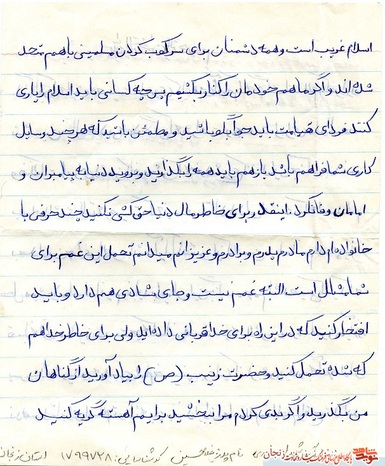 اسلام غریب است و همه دشمنان برای سرکوب کردن مسلمین با هم متحد
شده اند و اگر ما هم خودمان را کنار بکشیم پس چه کسانی باید اسلام را یاری
کنند فردای قیامت باید جوابگو باشید و مطمئن باشید که هر چند وسایل
کاری شما فراهم باشد باز هم باید همه را بگذارید و بروید دنیا به پیامبران و
امامان وفا نکرد. اینقدر برای خاطر مال دنیا حق کشی نکنید چند حرفی با
خانواده ام دارم مادرم پدرم و برادرم و عزیزانم میدانم تحمل این غم برای
شما مشکل است البته غم نیست و جای شادی هم دارد و باید
افتخار کنید که در این راه برای خدا قربانی داده اید ولی برای خاطر خدا هم
که شده تحمل کنید و حضرت زینب (ص) را بیاد آورید از گناهان
من بگذرید و اگر بدی کردم مرا ببخشید برایم آهسته گریه کنید
نام پدر: غلامحسین کد شناسایی: ۱۷۹۹۷۲۸ استان زنجان